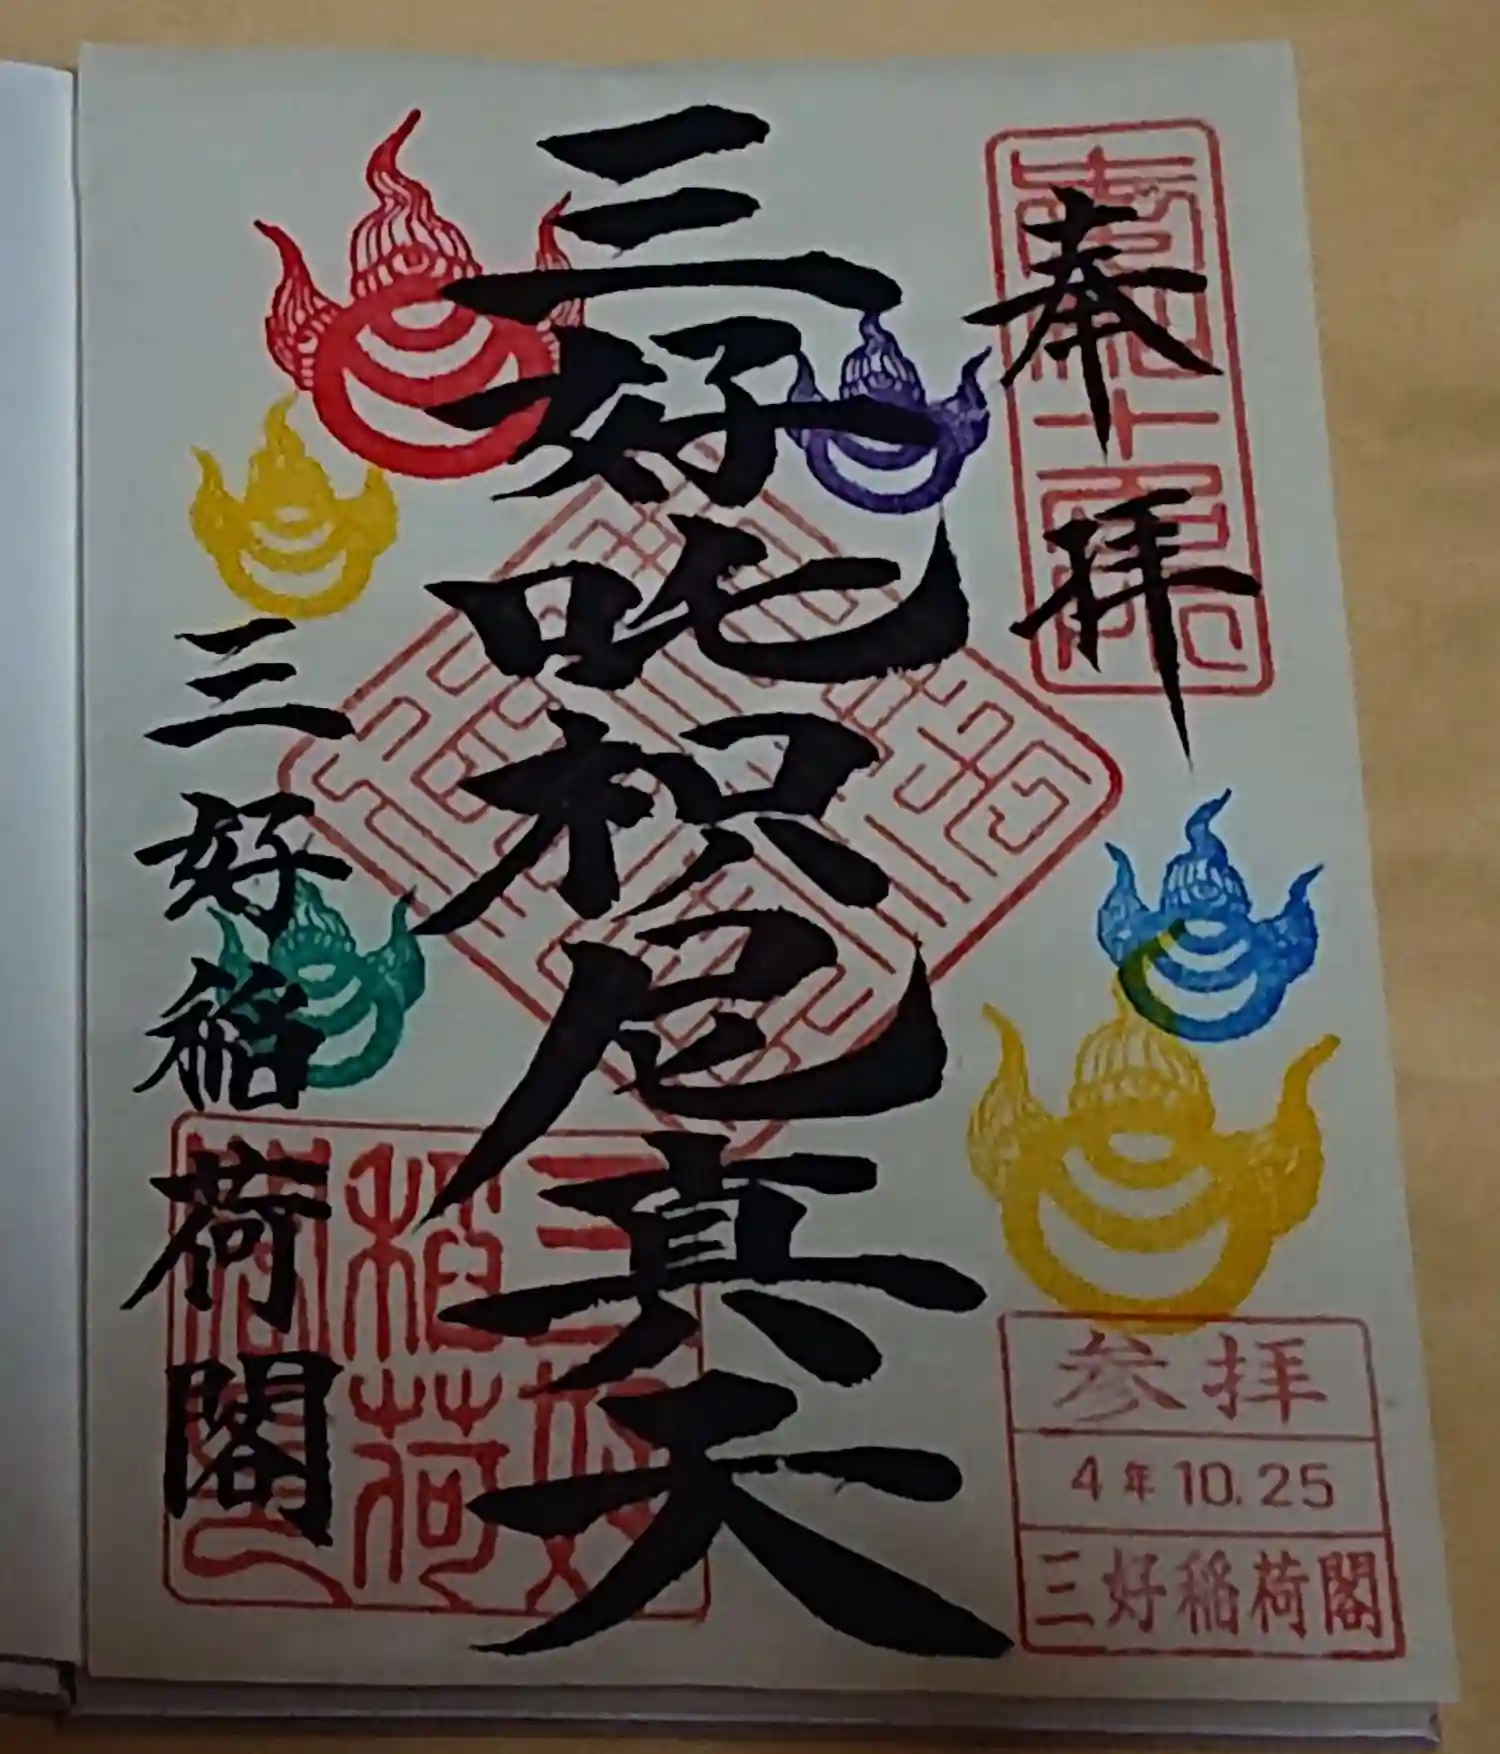 奉拝
三好吒枳尼真天
三好稲荷閣
三好稲荷閣
参拝
4年10.25
三好稲荷閣